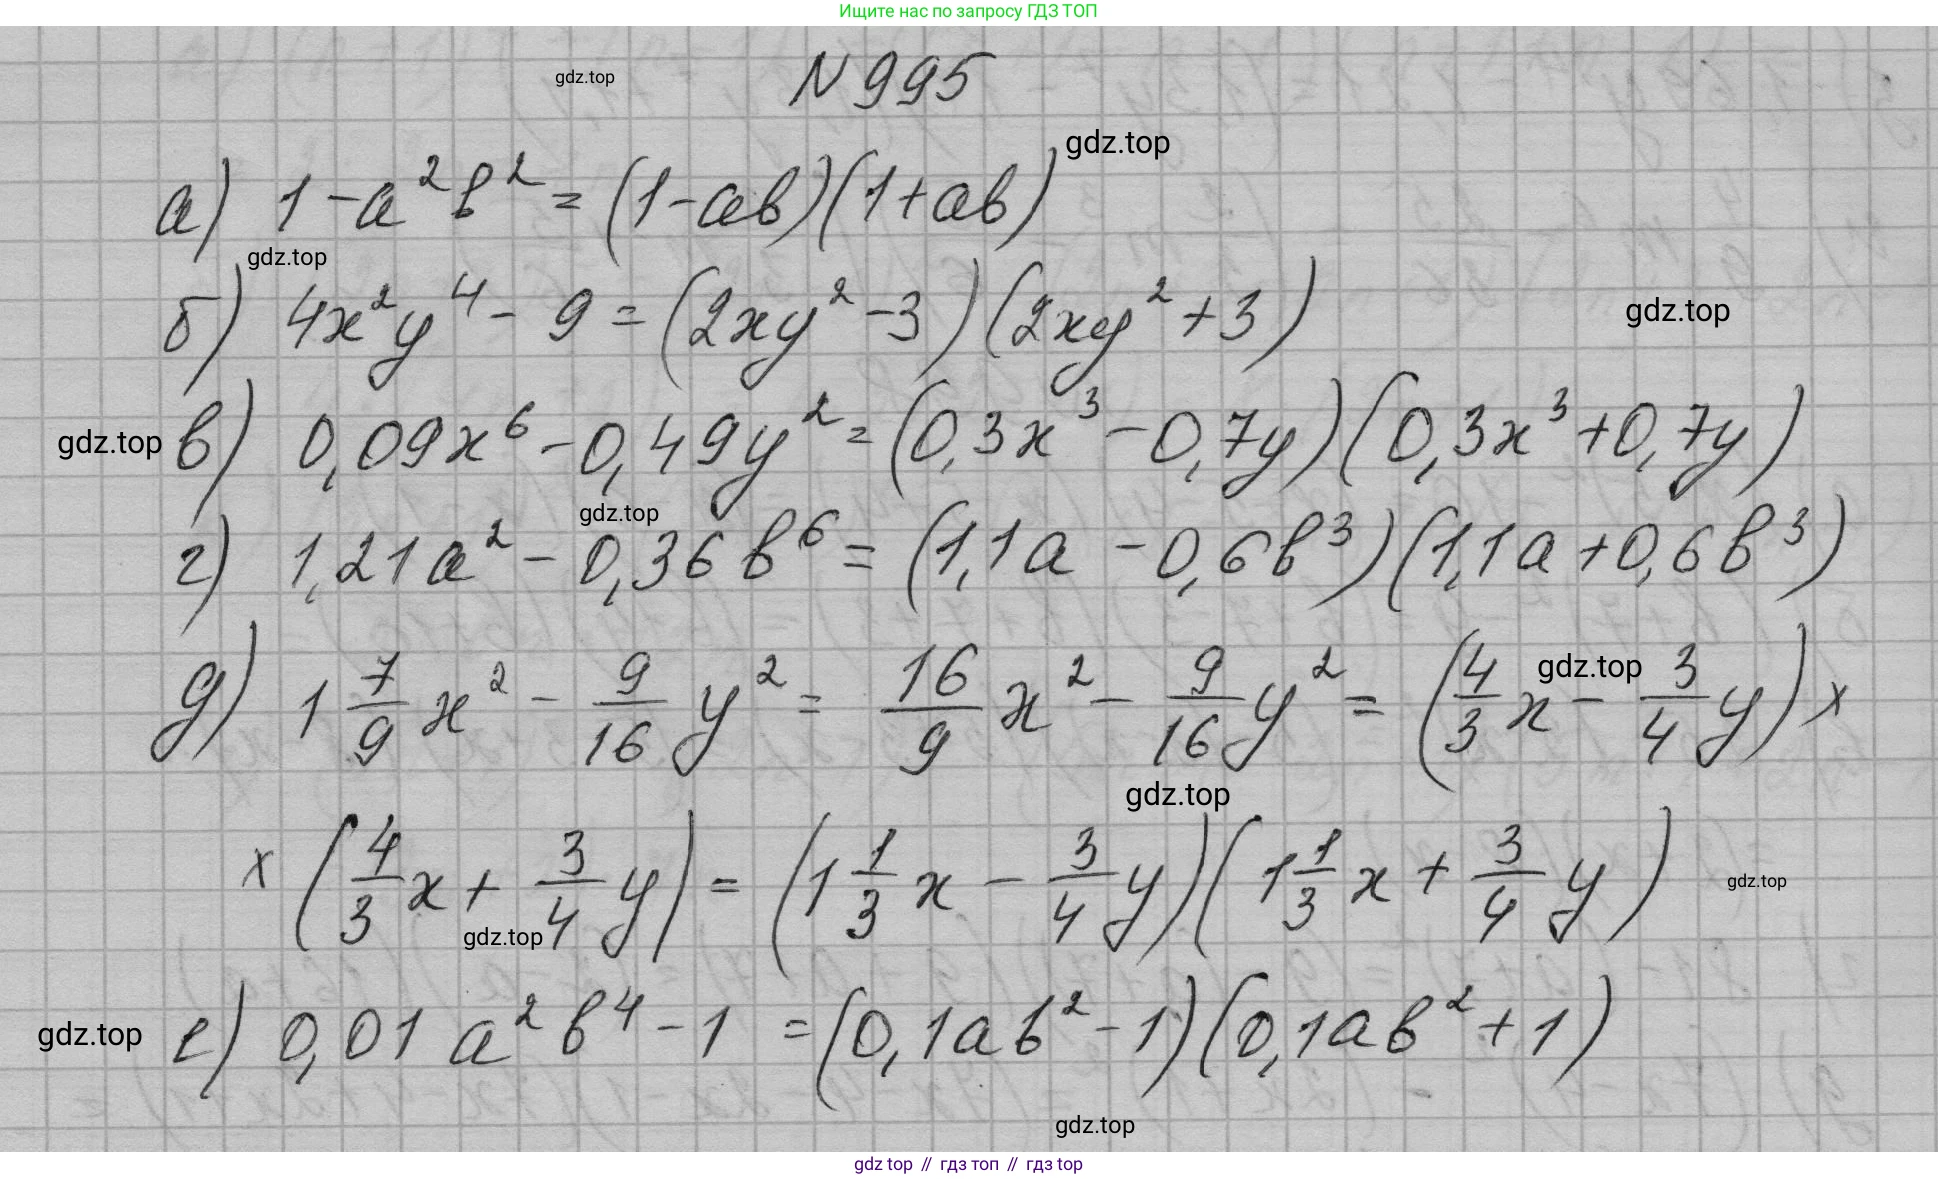 Ищите нас по запросу ГДЗ ТОП
gdz.top
N 995
gdz.top
а) 1 - a²b² = (1 - ab)(1 + ab)
gdz.top
б) 4x²y⁴ - 9 = (2xy² - 3)(2xy² + 3)
gdz.top
gdz.top
в) 0,09x⁶ - 0,49y² = (0,3x³ - 0,7y)(0,3x³ + 0,7y)
gdz.top
г) 1,21a² - 0,36b⁶ = (1,1a - 0,6b³)(1,1a + 0,6b³)
gdz.top
д) 1 7/9 x² - 9/16 y² = 16/9 x² - 9/16 y² = (4/3 x - 3/4 y) ×
gdz.top
× (4/3 x + 3/4 y) = (1 1/3 x - 3/4 y)(1 1/3 x + 3/4 y)
gdz.top
gdz.top
gdz.top
е) 0,01 a²b⁴ - 1 = (0,1ab² - 1)(0,1ab² + 1)
gdz.top
gdz top // гдз топ // гдз top